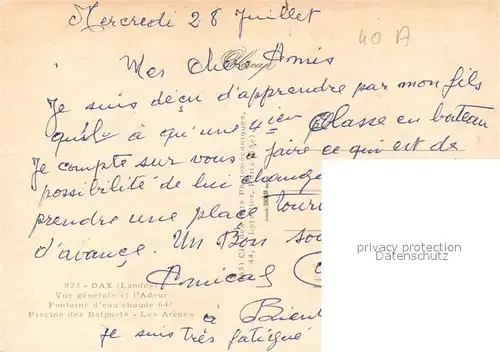 Mercredi 28 Juillet
40 A
Mes Chers Amis
Je suis déçu d'apprendre par mon fils
qu'il à qu'une 4ième Classe en bateau
Je compte sur vous à faire ce qui est de
possibilité de lui change
prendre une place tour
d'avance. Un Bon sou
Amical
à Bient
je suis très fatigué
923 - DAX (Landes)
Vue générale et l'Adour
Fontaine d'eau chaude 64°
Piscine des Baignots - Les Arènes
privacy protection
www.ansichtskartenhandel.de